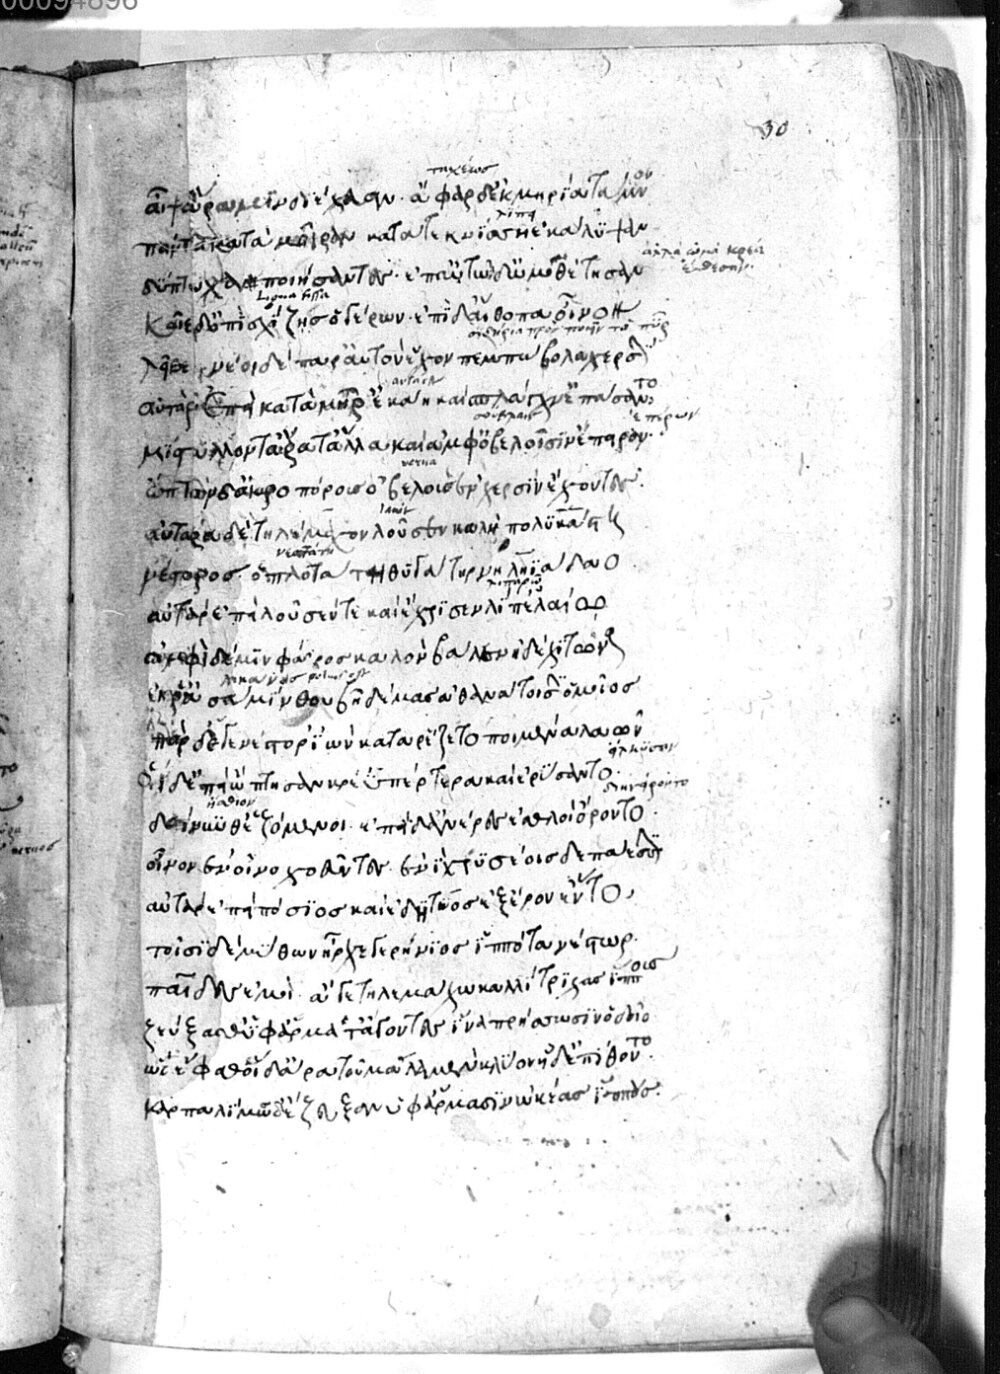 00094896
30
ταχέως
αἶψ' ἄρα μιν διέχευαν· ἄφαρ δ' ἐκ μηρία τάμνον
λίπη
πάντα κατὰ μοῖραν κατά τε κνίσση ἐκάλυψαν
δίπτυχα ποιήσαντες· ἐπ' αὐτῶν δ' ὠμοθέτησαν
ligna fissa
καῖε δ' ἐπὶ σχίζης ὁ γέρων· ἐπὶ δ' αἴθοπα οἶνον
λεῖβε· νέοι δὲ παρ' αὐτὸν ἔχον πεμπώβολα χερσίν
αὐτὰρ ἐπεὶ κατὰ μῆρ' ἐκάη καὶ σπλάγχν' ἐπάσαντο
ἔπειρον
μίστυλλόν τ' ἄρα τἆλλα καὶ ἀμφ' ὀβελοῖσιν ἔπειρον·
ὤπτων δ' ἀκροπόρους ὀβελοὺς ἐν χερσὶν ἔχοντες·
lavit
αὐτὰρ ἃ δὲ τηλέμαχον λοῦσεν καλὴ πολυκάστη
νεωτάτη
νέστορος ὁπλοτάτη θυγάτηρ νηληϊάδαο
λιπαρῶ
αὐτὰρ ἐπεὶ λοῦσέν τε καὶ ἔχρισεν λίπ' ἐλαίω
ἀμφὶ δέ μιν φᾶρος καλὸν βάλεν ἠδὲ χιτῶνα
ἐκ ῥ' ἀσαμίνθου βῆ δέμας ἀθανάτοισιν ὁμοῖος
πὰρ δ' ὅγε νέστορ' ἰὼν κατ' ἄρ' ἕζετο ποιμένα λαῶν
εἵλκυσαν
οἱ δ' ἐπεὶ ὤπτησαν κρέ' ὑπέρτερα καὶ ἐρύσαντο·
ἤσθιον
δαίνυνθ' ἑζόμενοι· ἐπὶ δ' ἀνέρες ἐσθλοὶ ὄροντο·
οἶνον ἐνοινοχοεῦντες ἐνὶ χρυσέοις δεπάεσσιν
αὐτὰρ ἐπεὶ πόσιος καὶ ἐδητύος ἐξ ἔρον ἕντο,
τοῖσι δὲ μύθων ἦρχε γερήνιος ἱππότα νέστωρ·
παῖδες ἐμοί· ἄγε τηλεμάχω καλλίτριχας ἵππους
ζεύξαθ' ὑφ' ἅρματ' ἄγοντες ἵνα πρήσσωσιν ὁδοῖο
ὣς ἔφαθ' οἱ δ' ἄρα τοῦ μάλα μὲν κλύον ἠδ' ἐπίθοντο·
καρπαλίμως δ' ἔζευξαν ὑφ' ἅρμασιν ὠκέας ἵππους·